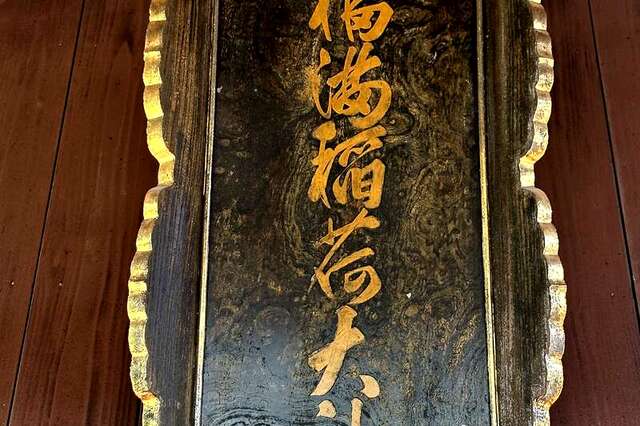 福満稲荷大